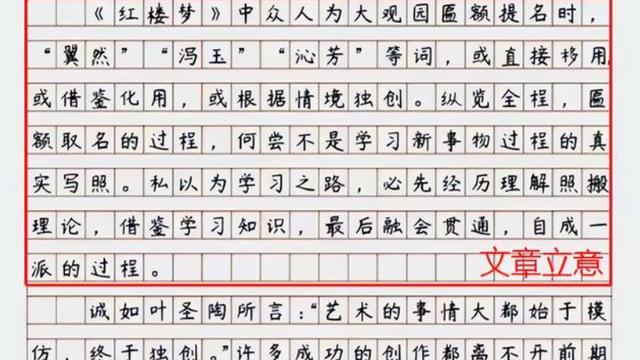 《红楼梦》中众人为大观园匾额提名时，
“翼然”“泻玉”“沁芳”等词，或直接移用，
或借鉴化用，或根据情境独创。纵览全程，匾
额取名的过程，何尝不是学习新事物过程的真
实写照。私以为学习之路，必先经历理解照搬
理论，借鉴学习知识，最后融会贯通，自成一
派的过程。
文章立意
诚如叶圣陶所言：“艺术的事情大都始于模
仿，终于独创。”许多成功的创作都离不开前期